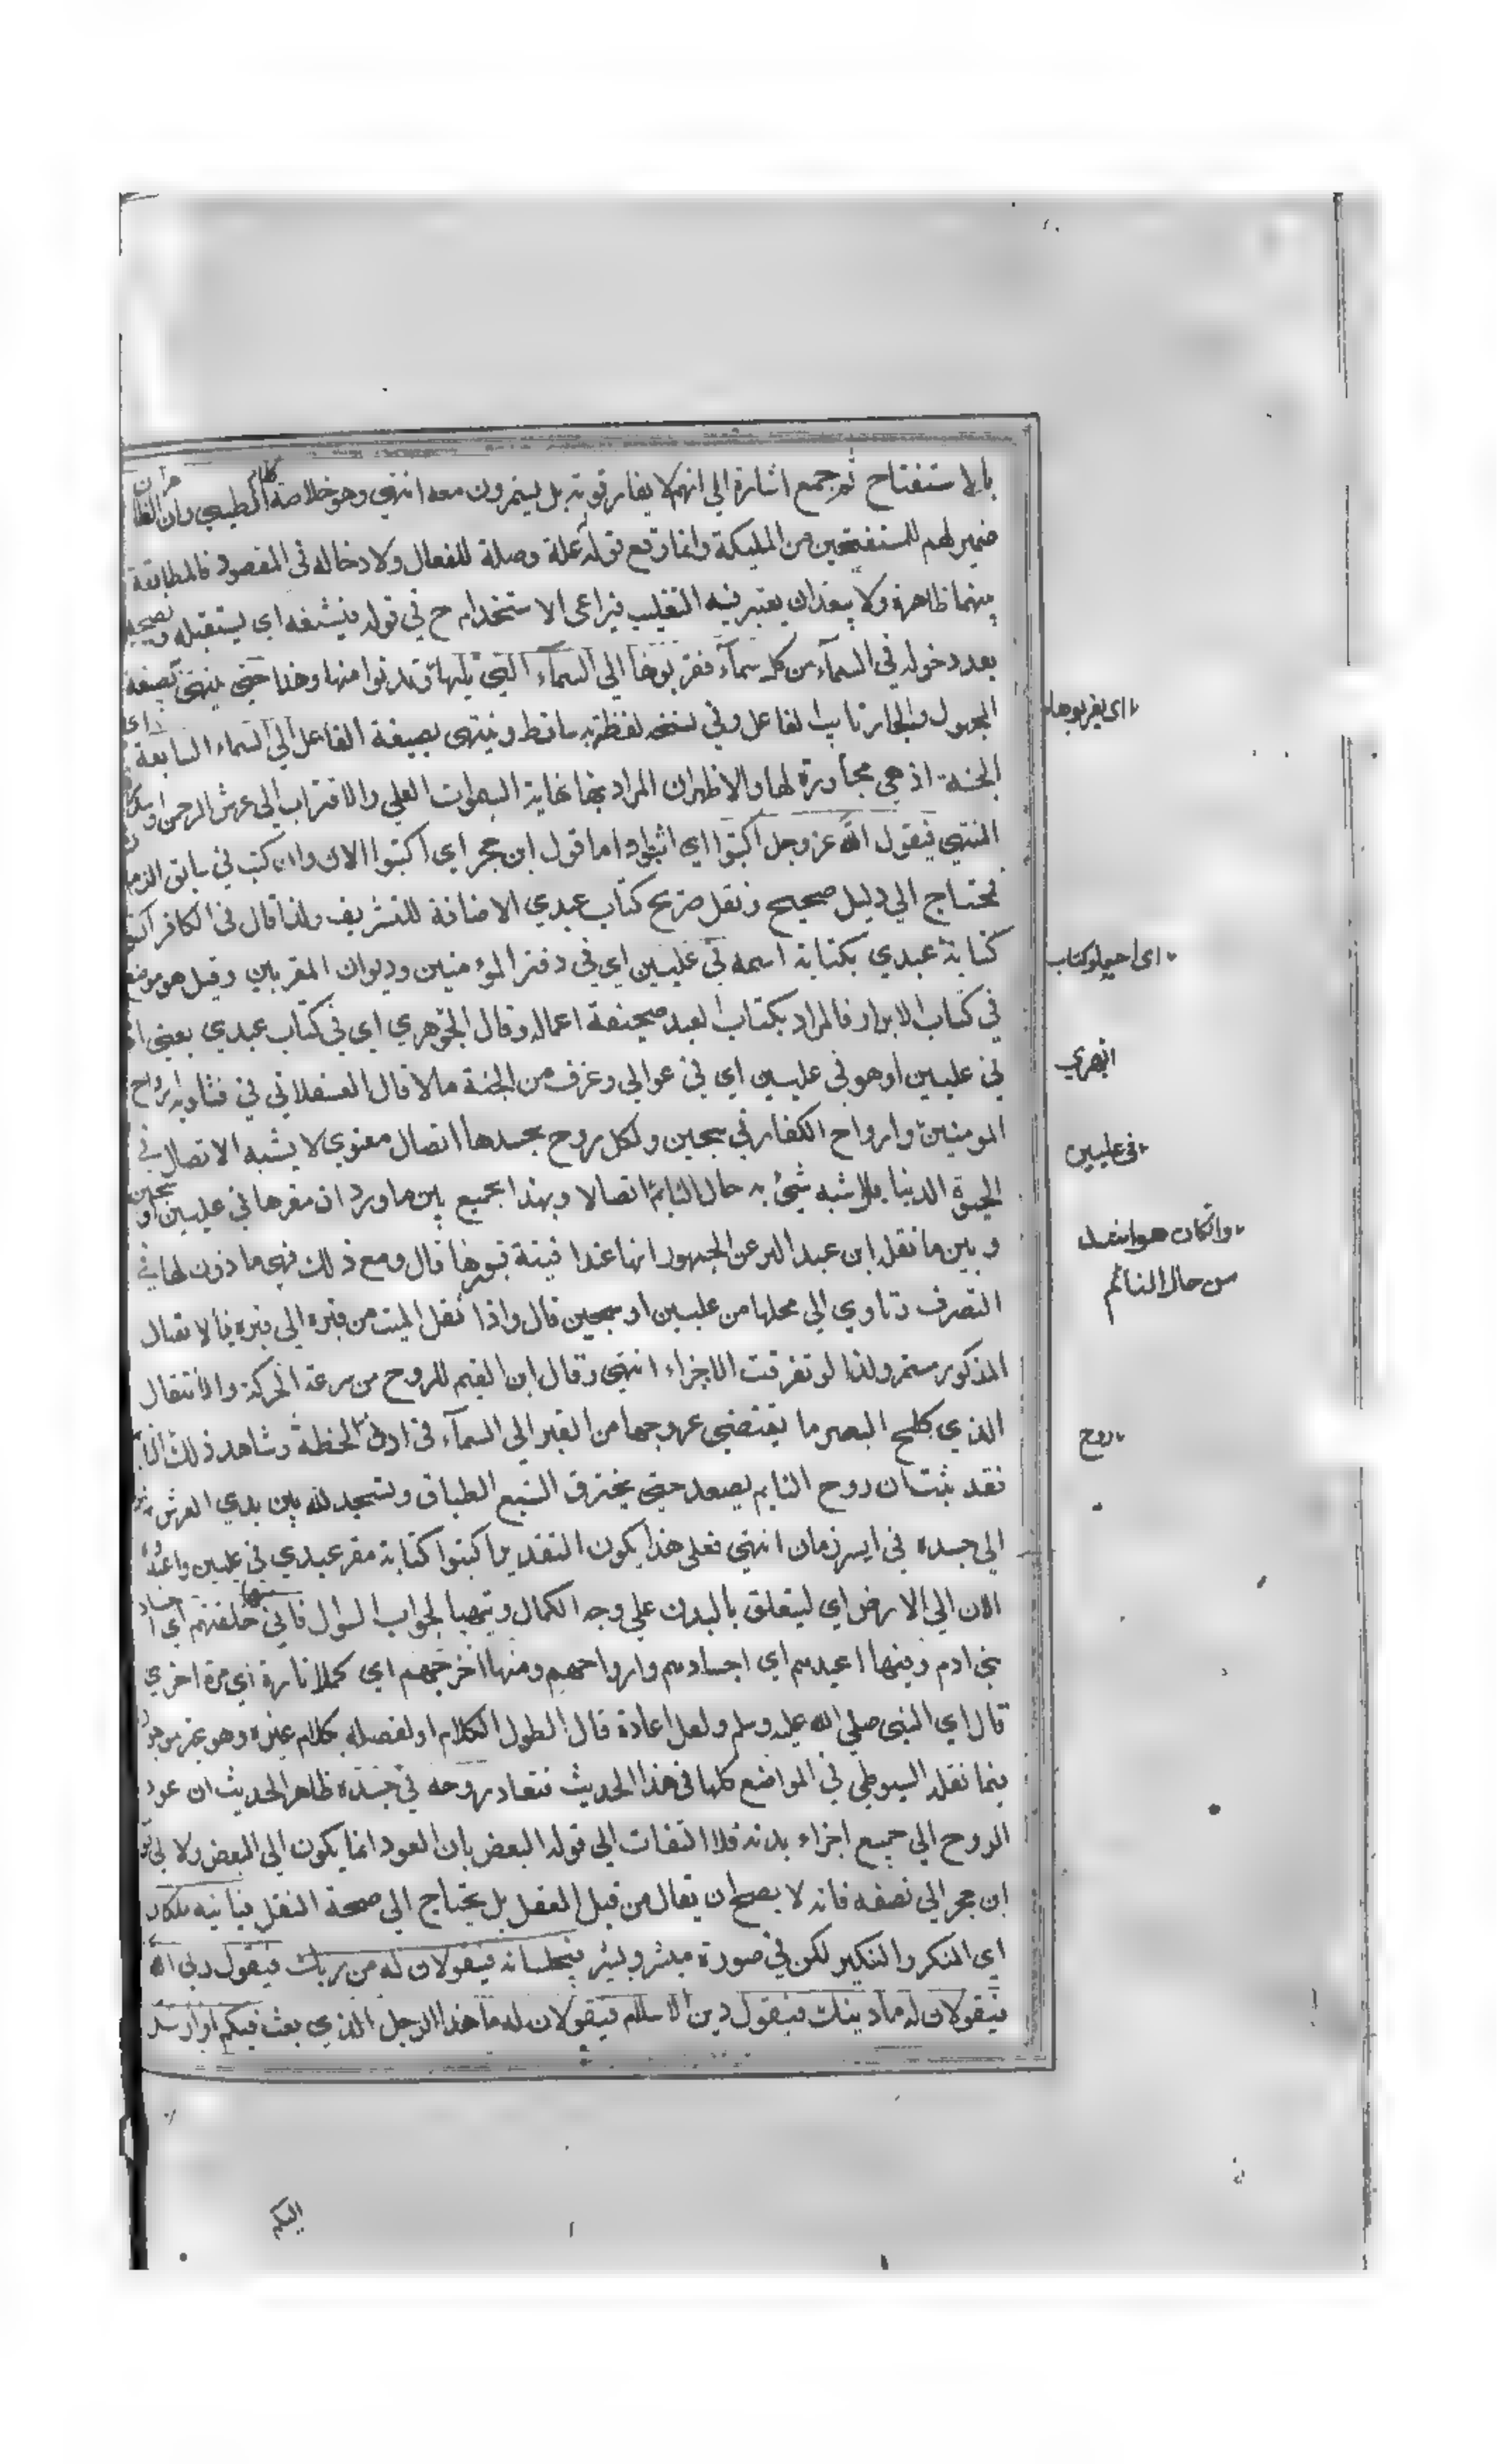 بالاستفتاح ثم جمع اشارة الي انهم لا يفارقونه بل يستمرون معه انتهي وهو خلاصة كلام الطيبي وان الظاهر ان
ضمير لهم للمستفتحين من المليكة وانما وقع قوله له علة وصلة للفعال ولا دخاله في المقصود فالمطابقة
بينهما ظاهرة ولا يبعد ان يعتبر فيه التغليب فيراعى الاستخدام ح في قوله فيشيعه اي يستقبله ويصحبه
بعد دخوله في السمآء من كل سمآء مقربوها الي السمآء التي تليها وتدنوا منها وهذا حتى ينتهي بصيغة
المجهول والجار نايب الفاعل وفي نسخه لفظة به ساقط وينتهي بصيغة الفاعل الي السماء السابعة اي
الجنة اذ هي مجاورة لها والاظهر ان المراد بها غاية السموات العلي والاقتراب الي عرش الرحمن او سدرة
المنتهي فيقول الله عز وجل اكتبوا اي اثبتوا واما قول ابن حجر اي اكتبوا الان وان كتب في سابق الزمان
فيحتاج الي دليل صحيح ونقل صريح كتاب عبدي الاضافة للتشريف ولذا قال في الكافر اكتبوا
كتابة عبدي بكتابة اسمه في عليين اي في دفتر المؤمنين وديوان المقربين وقيل هو موضع
في كتاب الابرار فالمراد بكتاب العبد صحيفة اعماله وقال الجوهري اي في كتاب عبدي بعني
في عليين او هو في عليين اي في عوالي وغرف من الجنة مالا قال العسقلاني في فتاويه ارواح
المومنين وارواح الكفار في سجين ولكل روح بجسدها اتصال معنوي لا يشبه الاتصال في
الحيوة الدنيا بل اشبه شئ به حال النايم اتصالا وبهذا يجمع بين ما ورد ان مقرها في عليين او سجين
وبين ما نقله ابن عبد البر عن الجمهور انها عند افنية قبورها قال ومع ذلك فهي ماذون لها في
التصرف وتاوي الي محلها من عليين او سجين قال واذا نقل الميت من قبره الي قبره فالاتصال
المذكور مستمر ولذا لو تفرقت الاجزاء انتهي وقال ابن القيم للروح من سرعة الحركة والانتقال
الذي كلمح البصر ما يقتضي عروجها من القبر الي السمآء في ادنى لحظة وشاهد ذلك النايم
فقد ثبت ان روح النايم يصعد حتي يخترق السبع الطباق وتسجد لله بين يدي العرش ثم
الي جسده في ايسر زمان انتهي فعلى هذا يكون التقدير اكتبوا كتابة مقر عبدي في عليين واعيدوه
الان الي الارض اي ليتعلق بالبدن علي وجه الكمال ويتهيا لجواب السوال فاني منها خلقتهم اي اجساد
بني ادم وفيها اعيدهم اي اجسادهم وارواحهم ومنها اخرجهم اي كملا تارة اي مرة اخري
قال اي النبي صلي الله عليه وسلم ولعل اعادة قال لطول الكلام او لفصله بكلام غيره وهو غير موجود
فيما نقله السيوطي في المواضع كلها في هذا الحديث فتعاد روحه في جسده ظاهر الحديث ان عود
الروح الي جميع اجزاء بدنه فلا التفات الي قوله البعض بان العود انما يكون الي البعض ولا الي قول
ابن حجر الي نصفه فانه لا يصح ان يقال من قبل العقل بل يحتاج الي صحة النقل فياتيه ملكان
اي المنكر والنكير لكن في صورة مبشر وبشير فيجلسانه فيقولان له من ربك فيقول ربي الله
فيقولان له ما دينك فيقول دين الاسلام فيقولان له ما هذا الرجل الذي بعث فيكم او ارسل
اي يقربوها
اي اجعلوا كتاب
البصري
في عليين
وان كان هو اشد
من حال النائم
روح
اليكم